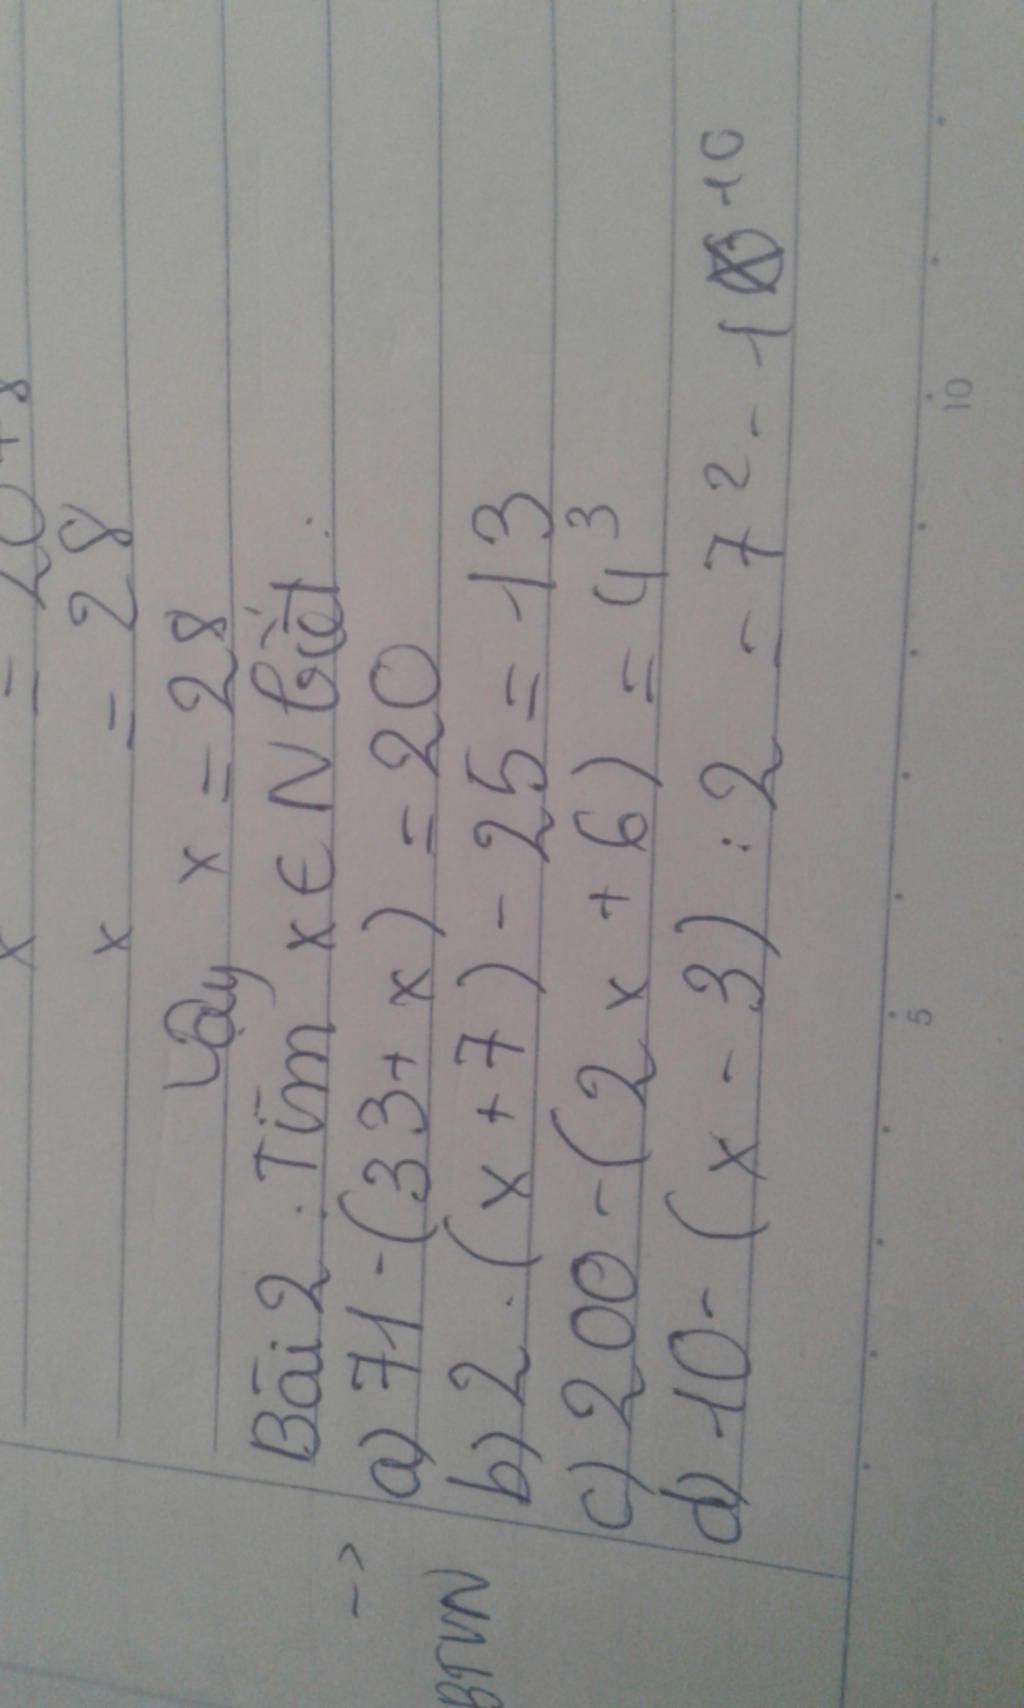 x = 20+8
x = 28
Vậy x = 28
Bài 2. Tìm x ∈ N biết:
-> a) 71 - (33+ x) = 20
BTVN b) 2 . (x + 7) - 25 = 13
c) 200 - (2x + 6) = 4³
d) 10 - (x - 3) : 2 - 7² - 1¹⁰
5 10